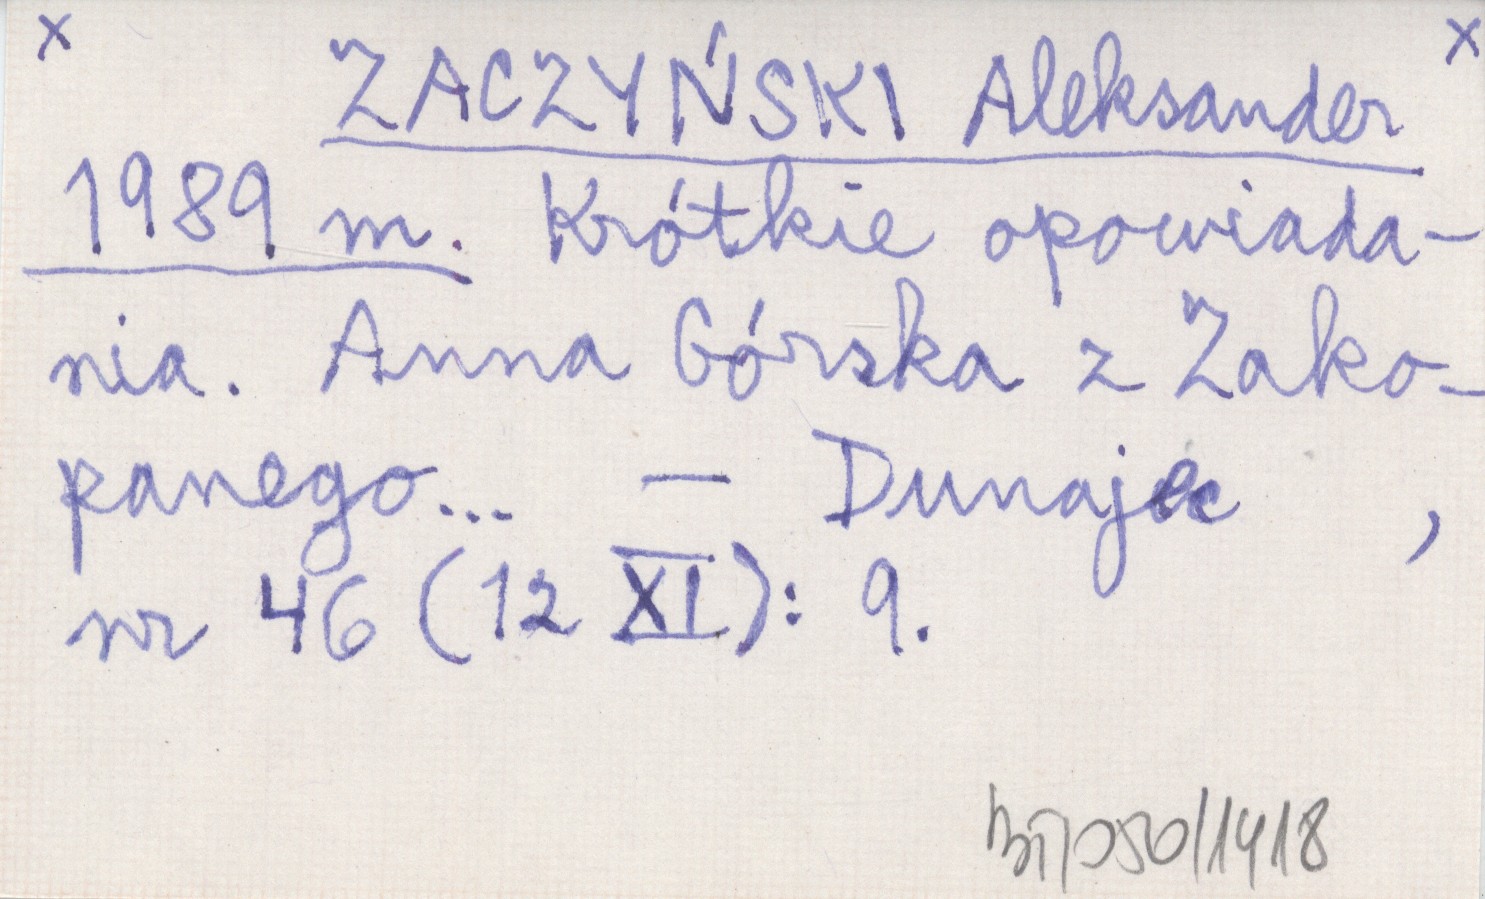 x x
ZACZYŃSKI Aleksander
1989 m. Krótkie opowiada-
nia. Anna Górska z Zako-
panego... — Dunajec ,
nr 46 (12 XI): 9.
050/1418